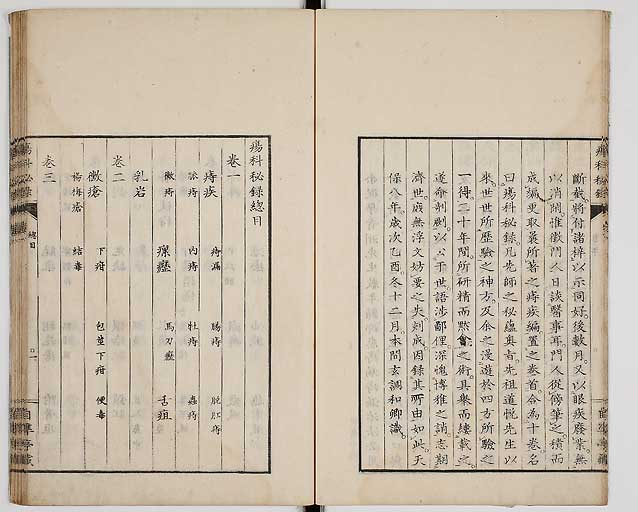 斷哉將付諸梓以示同好後數月又以眼疾廢業無
以消閒惟徵門人日談醫事耳門人從傍筆之積而
成編更取曩所著之痔疾編置之卷首合為十卷名
曰瘍科秘錄凡先師之秘蘊奧旨先祖道悅先生以
來世世所歷驗之神方及余之漫遊於四方所驗之
一得三十年間所研精而默會之術具舉而縷載之
遂命剞劂以公于世語涉鄙俚深愧博雅之誚志期
濟世庶無浮文妨要之失刻成因錄其所由如此天
保八年歲次乙酉冬十二月本間玄調和卿識
瘍科秘錄
自準亭藏
瘍科秘錄總目
卷一
痔疾 痔漏 腸痔 脫肛痔
脉痔 內痔 牡痔 蟲痔
黴痔 瘰癧 馬刀癧 舌疽
乳岩
卷二
黴瘡 下疳 包莖下疳 便毒
楊梅瘡 結毒
卷三
瘍科秘錄 總目 一 自準亭藏